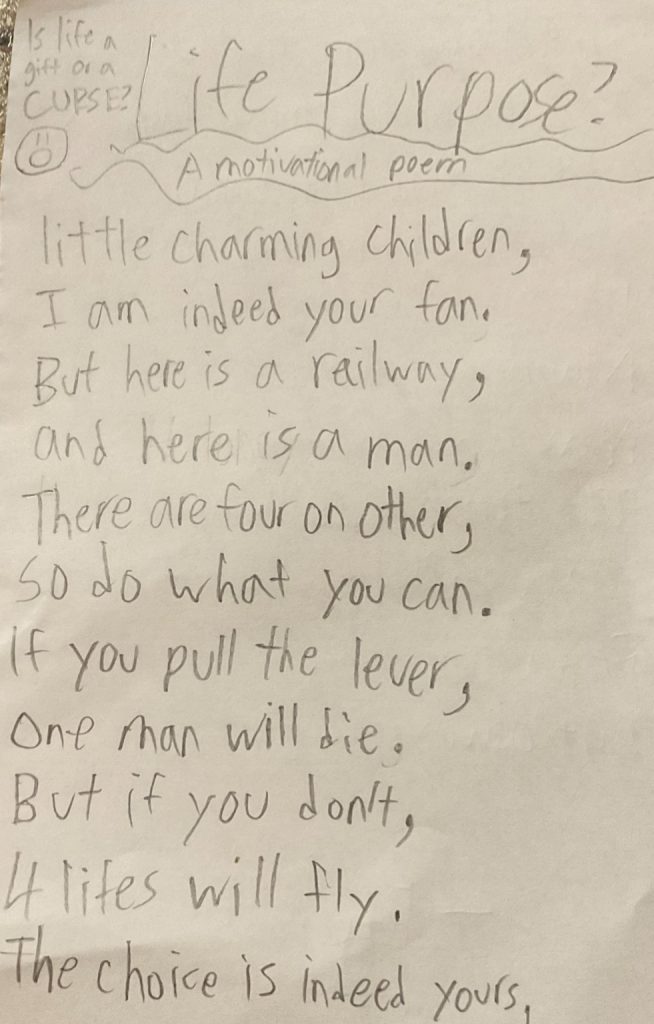 Is life a
gift or a
CURSE?
Life Purpose?
A motivational poem
little charming children,
I am indeed your fan.
But here is a railway,
and here is a man.
There are four on other,
so do what you can.
If you pull the lever,
One man will die.
But if you don't,
4 lifes will fly.
The choice is indeed yours,